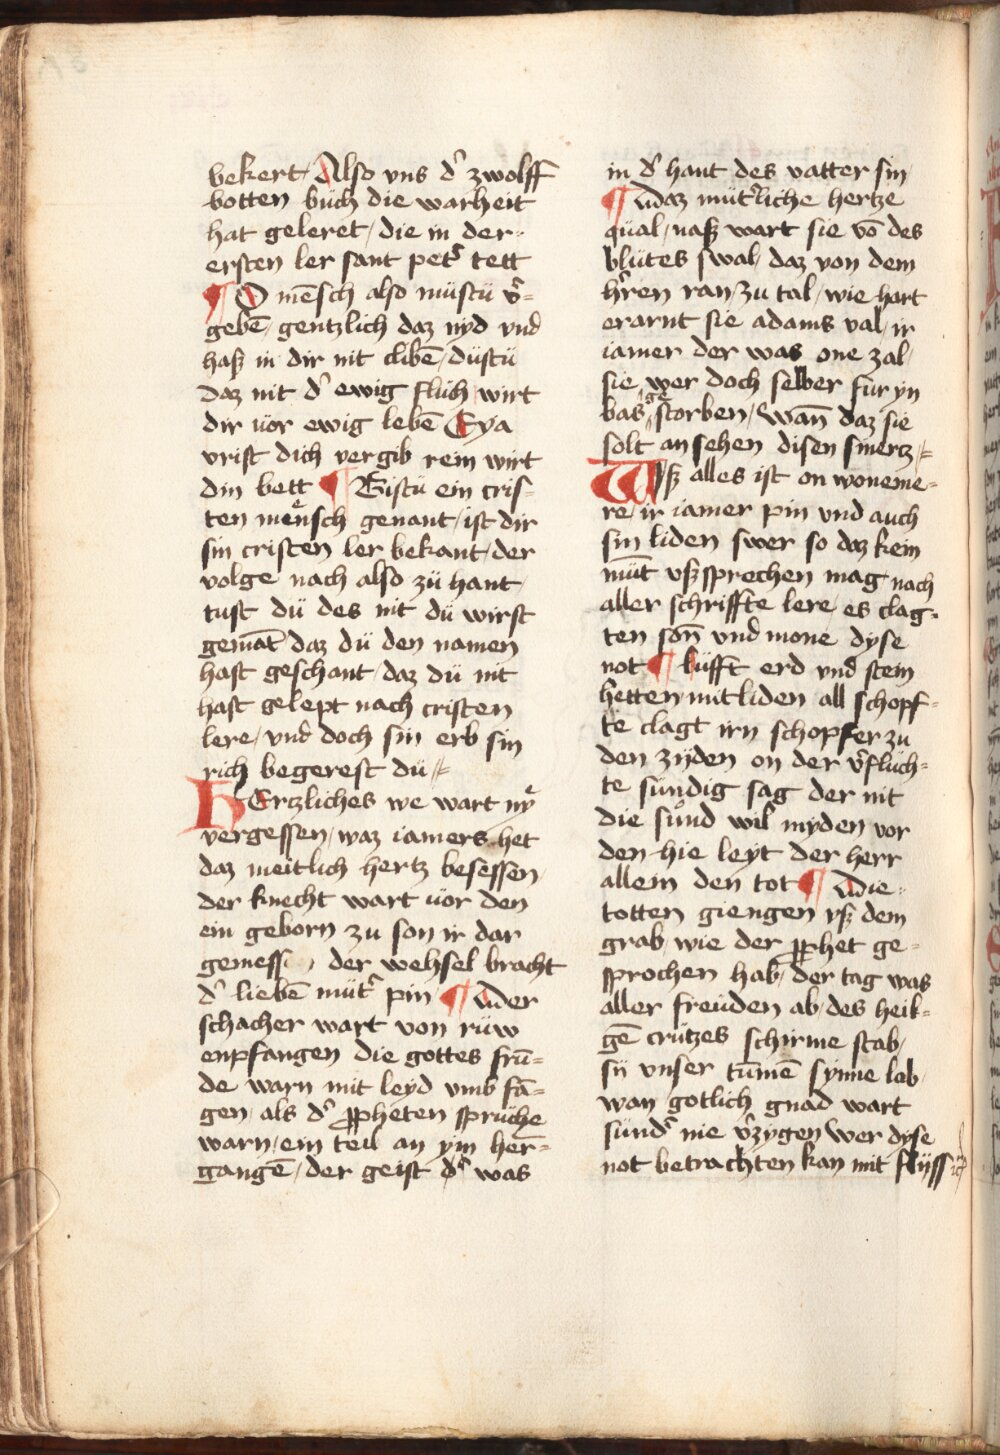 bekert / Also vns d' zwolff
botten bůch die warheit
hat geleret / die in der-
ersten ler sant pet' tett
¶ O mēsch also můstu v̄'-
gebē / gentzlich daz nyd vnd
haß in dir nit clibē / důstu
daz nit d' ewig flůch wirt
dir uor ewig lebē Eya
vrist dich vergib rein wirt
din bett ¶ Bistu ein cris-
ten mensch genant / ist dir
sin cristen ler bekant / der
volge nach also zů hant /
tust dů des nit dů wirst
gemāt daz dů den namen
hast geschant / daz dů nit
hast gelept nach cristen
lere / vnd doch sin erb sin
rich begerest dů //
HErtzliches we wart ny
vergessen / waz iamers het
daz meitlich hertz besessen /
der knecht wart uor den
ein geborn zu son ir dar
gemessi , der wehsel bracht
d' liebē můt' pin ¶ Der
schacher wart von růw
enpfangen die gottes frū-
de warn mit leyd vmb fā-
gen / als d' ꝓpheten sprůche
warn / ein teil an ym her-
gangē / der geist d' was
in d' hant des vatter sin /
¶ Daz můt'liche hertze
qual / naß wart sie vō des
blůtes swal / daz von dem
h'ren ran / zu tal / wie hart
erarnt sie adams val / ir
iamer der was one zal /
sie wer doch selber fur yn
bas gestorben / Wañ daz sie
solt an sehen disen smertz //
WIß alles ist on woneme-
re / ir iamer pin vnd auch
sin liden swer so daz kein
můt vßsprechen mag nach
aller schriffte lere / es clag-
ten soñ vnd mone dyse
not ¶ lufft erd vnd stein
hetten mitliden all schopf-
te clagt irn schopfer zu
den zyden on der v'flůch-
te sundig sag der nit
die sůnd wil myden vor
den hie leyt der herr
allein den tot ¶ Die-
totten giengen vß dem
grab wie der ꝓphet ge-
sprochen hab / der tag was
aller freuden ab / des heil-
gē crutzes schirme stab /
sy vnser tum̄ē synne lab /
wan gotlich gnad wart
sůnd' nie v'zygen wer dyse
not betrachten kan mit flyss